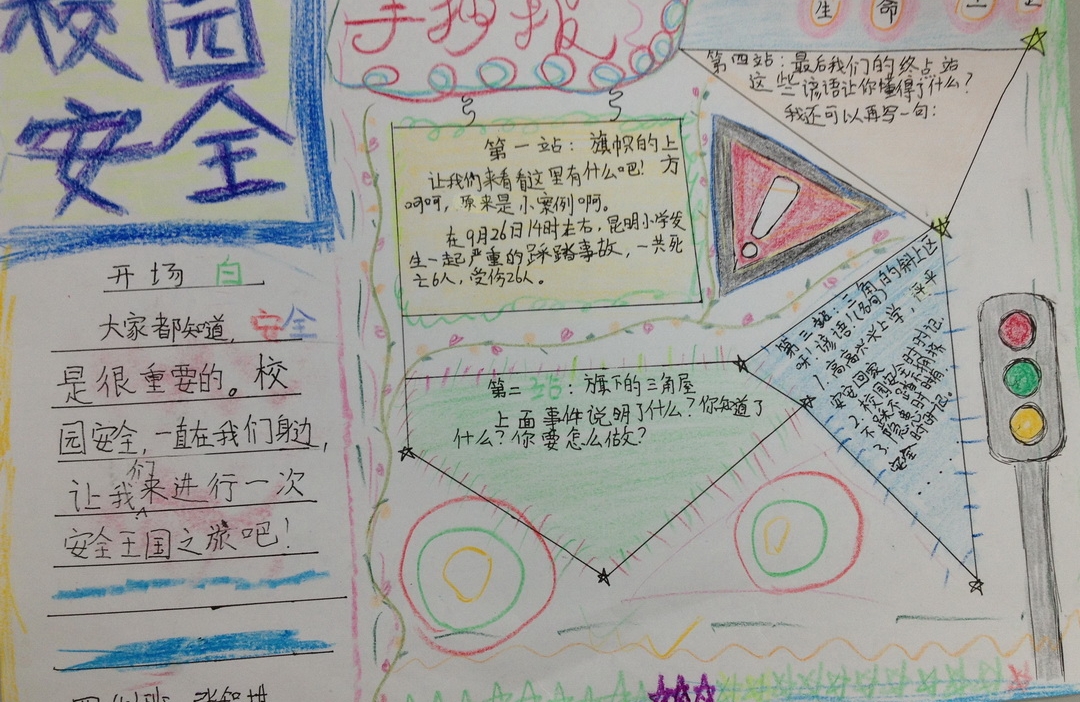 校园
安全
手抄报
生命
开场白
大家都知道,安全
是很重要的。校
园安全,一直在我们身边,
让我们来进行一次
安全王国之旅吧!
第一站:旗帜的上方
让我们来看看这里有什么吧!
呵呵,原来是小案例啊。
在9月26日14时左右,昆明小学发
生一起严重的踩踏事故,一共死
亡6人,受伤26人。
第二站:旗下的三角屋
上面事件说明了什么?你知道了
什么?你要怎么做?
第三站:三角的斜上区
呀:谚语
1.高高兴兴上学,平
安回家
2.校园安全时时记
3.
安全
第四站:最后我们的终点站
这些谚语让你懂得了什么?
我还可以再写一句: